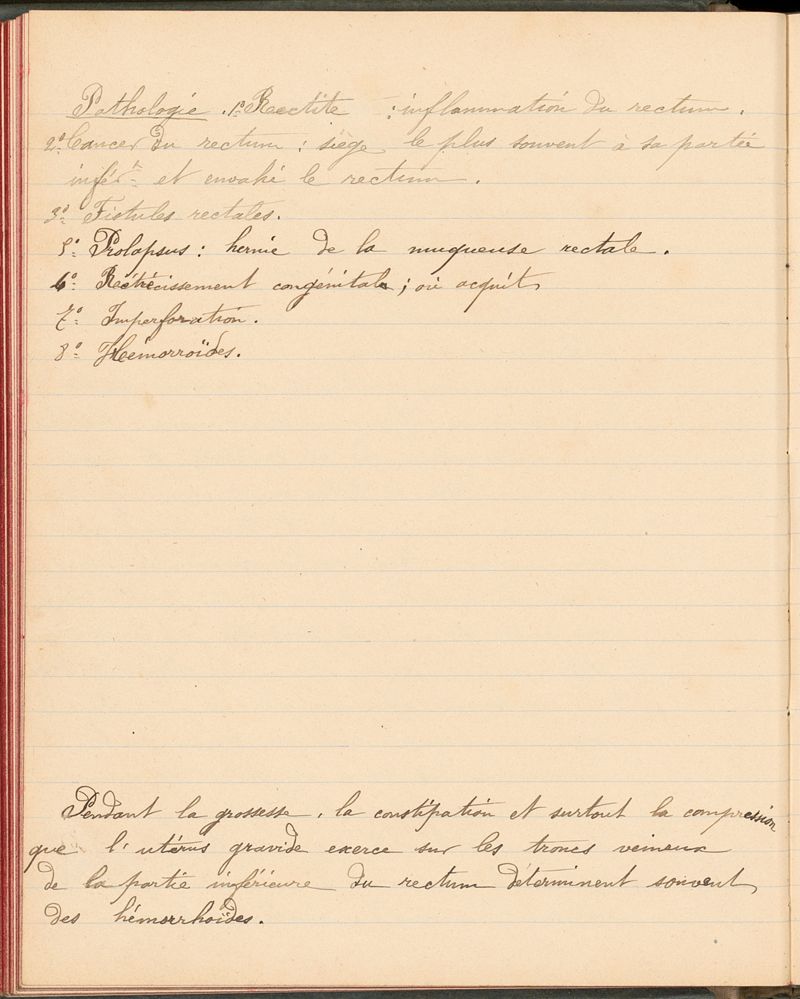 Pathologie . 1º Rectite : inflammation du rectum .
2º Cancer du rectum : siège le plus souvent à sa partie
infér^re et envahi le rectum .
3º Fistules rectales.
5º Prolapsus : hernie de la muqueuse rectale .
6º Rétrécissement congénitale ; où acquit
7º Imperforation .
8º Hémorroïdes.
Pendant la grossesse , la constipation et surtout la compression
que l'utérus gravide exerce sur les troncs veineux
de la partie inférieure du rectum déterminent souvent
des hémorrhoïdes.